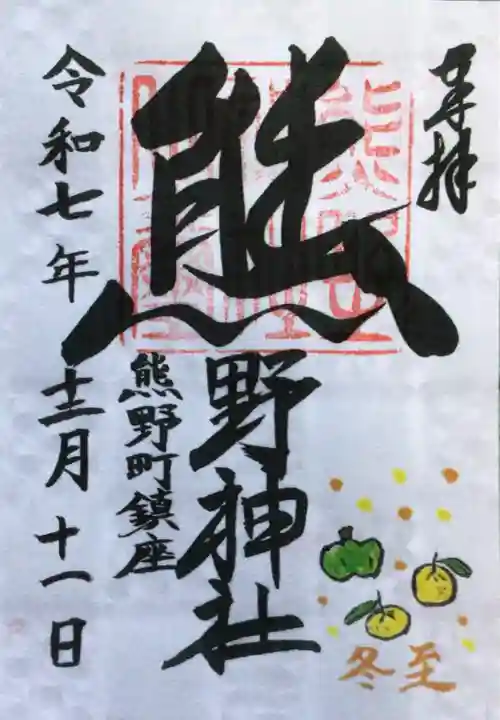 奉拝
熊野神社
熊野町鎮座
令和七年十二月十一日
冬至